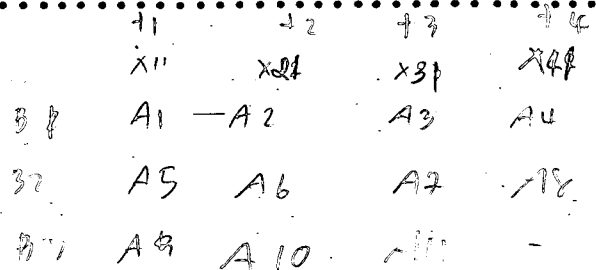 t1 t2 t3 t4
X11 X21 X31 X41
B1 A1 — A2 A3 A4
B2 A5 A6 A7 A8
A9 A10 A11 -